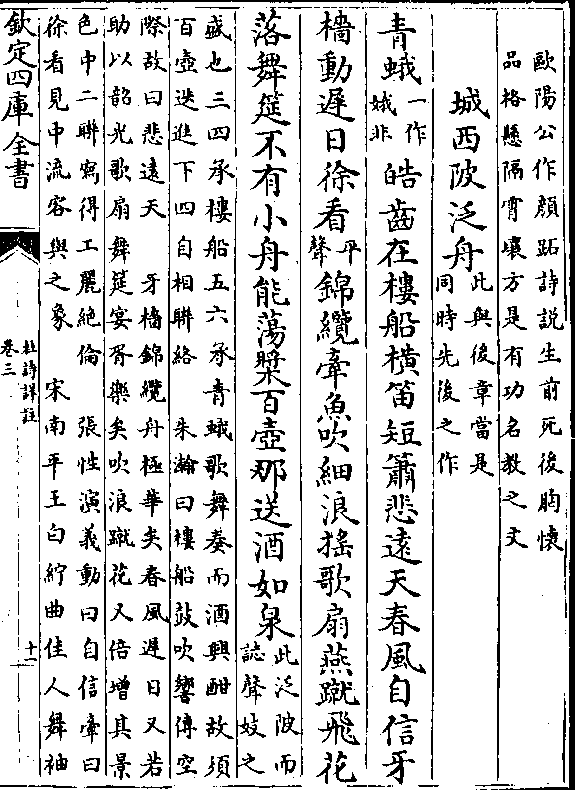 歐陽公作顏跖詩說生前死後胸懷
品格懸隔霄壤方是有功名教之文
城西陂泛舟此與後章當是同時先後之作
青蛾一作娥非皓齒在樓船橫笛短簫悲遠天春風自信牙
檣動遲日徐看平聲錦纜牽魚吹細浪搖歌扇燕蹴飛花
落舞筵不有小舟能蕩槳百壺那送酒如泉此泛陂而誌聲妓之
盛也三四承樓船五六承青蛾歌舞奏而酒興酣故須
百壺迭進下四自相聯絡 朱瀚曰樓船鼓吹響傳空
際故曰悲遠天 牙檣錦纜舟極華矣春風遲日又若
助以韶光歌扇舞筵宴胥樂矣吹浪蹴花又倍增其景
色中二聯寫得工麗絕倫 張性演義動曰自信牽曰
徐看見中流容與之象 宋南平王白紵曲佳人舞袖
欽定四庫全書
杜詩詳註
卷三
十二